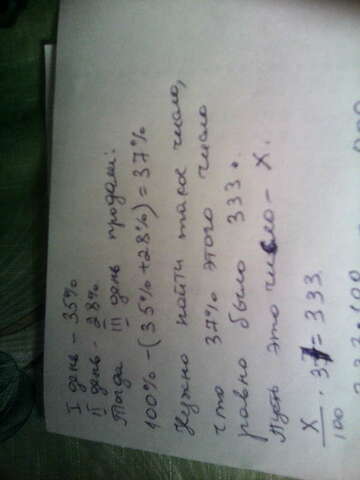 I день – 35%
II день – 28%
Тогда III день продали:
100% – (35% + 28%) = 37%
Нужно найти такое число,
что 37% этого число
равно было 333.
Пусть это число – X.
X/100 · 37 = 333.